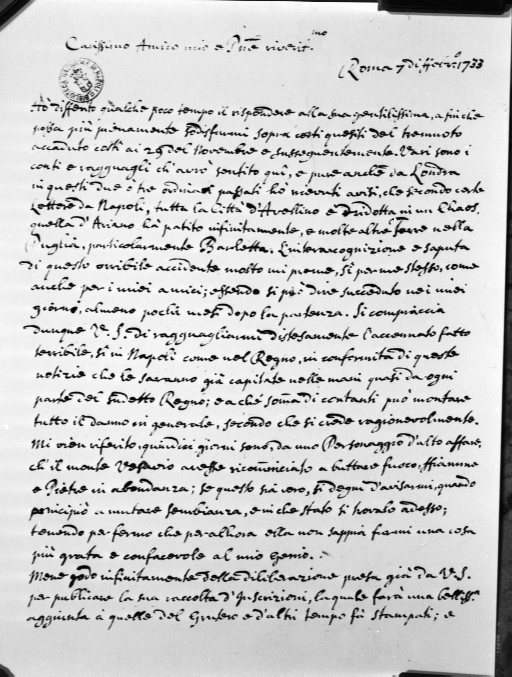 Carissimo Amico mio e Pne riverit.mo
Roma 7 di 1733
Hò differito qualche poco tempo il rispondere alla sua gentilissima, a fin che
possa più pienamente sodisfarmi sopra certi quesiti del tremuoto
accaduto costì ai 29 del Novembre e sussequentemente. Vari sono i
conti e ragguagli ch'avrò sentito quì, e pure anche da Londra
in questi due ò tre passati hò ricevuti avisi, che secondo certe
Lettere da Napoli, tutta la Città d'Avellino è ridotta in un Chaos,
quella d'Ariano hà patito infinitamente, e molte altre Terre nella
Puglia, particolarmente Barletta. L'intera cognizione e saputa
di questo orribile accidente molto mi preme, sì per me stesso, come
anche per i miei amici; essendo si può dire succeduto nei miei
giorni, almeno pochi mesi dopo la partenza. Si compiaccia
dunque V. S. di ragguagliarmi distesamente l'accennato fatto
terribile, sì in Napoli come nel Regno, in conformità di queste
notizie che le saranno già capitate nelle mani quasi da ogni
parte del sudetto Regno; e a che somma di contanti può montare
tutto il danno in generale, secondo che si crede ragionevolmente.
Mi vien riferito, quindici giorni sono, da uno Personaggio d'alto affare,
ch'il monte Vesuvio avesse ricominciato a buttare fuoco, ffiamme
e Pietre in abondanza; se questo sia vero, si degni d'avisarmi, quando
principiò a mutare sembianza, e in che stato si trovalo adesso;
tenendo per fermo che per allora ella non sappia farmi una cosa
più grata e confacevole al mio Genio.
Mene godo infinitamente della diliberazione presa già da V. S.
per publicare la sua raccolta d'Inscrizioni, la quale farà una belliss.a
aggiunta à quelle del Grutero e d'altri tempo fù stampati; e